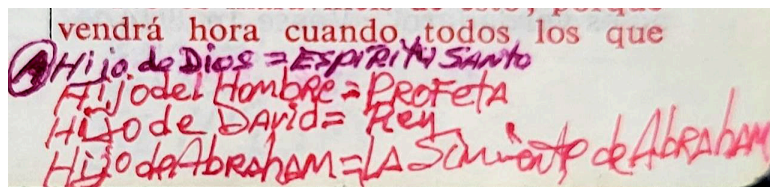 vendrá hora cuando todos los que
A Hijo de Dios = ESPIRITU SANTO
Hijo del Hombre = PROFETA
Hijo de David = Rey
Hijo de Abraham = LA Simiente de Abraham